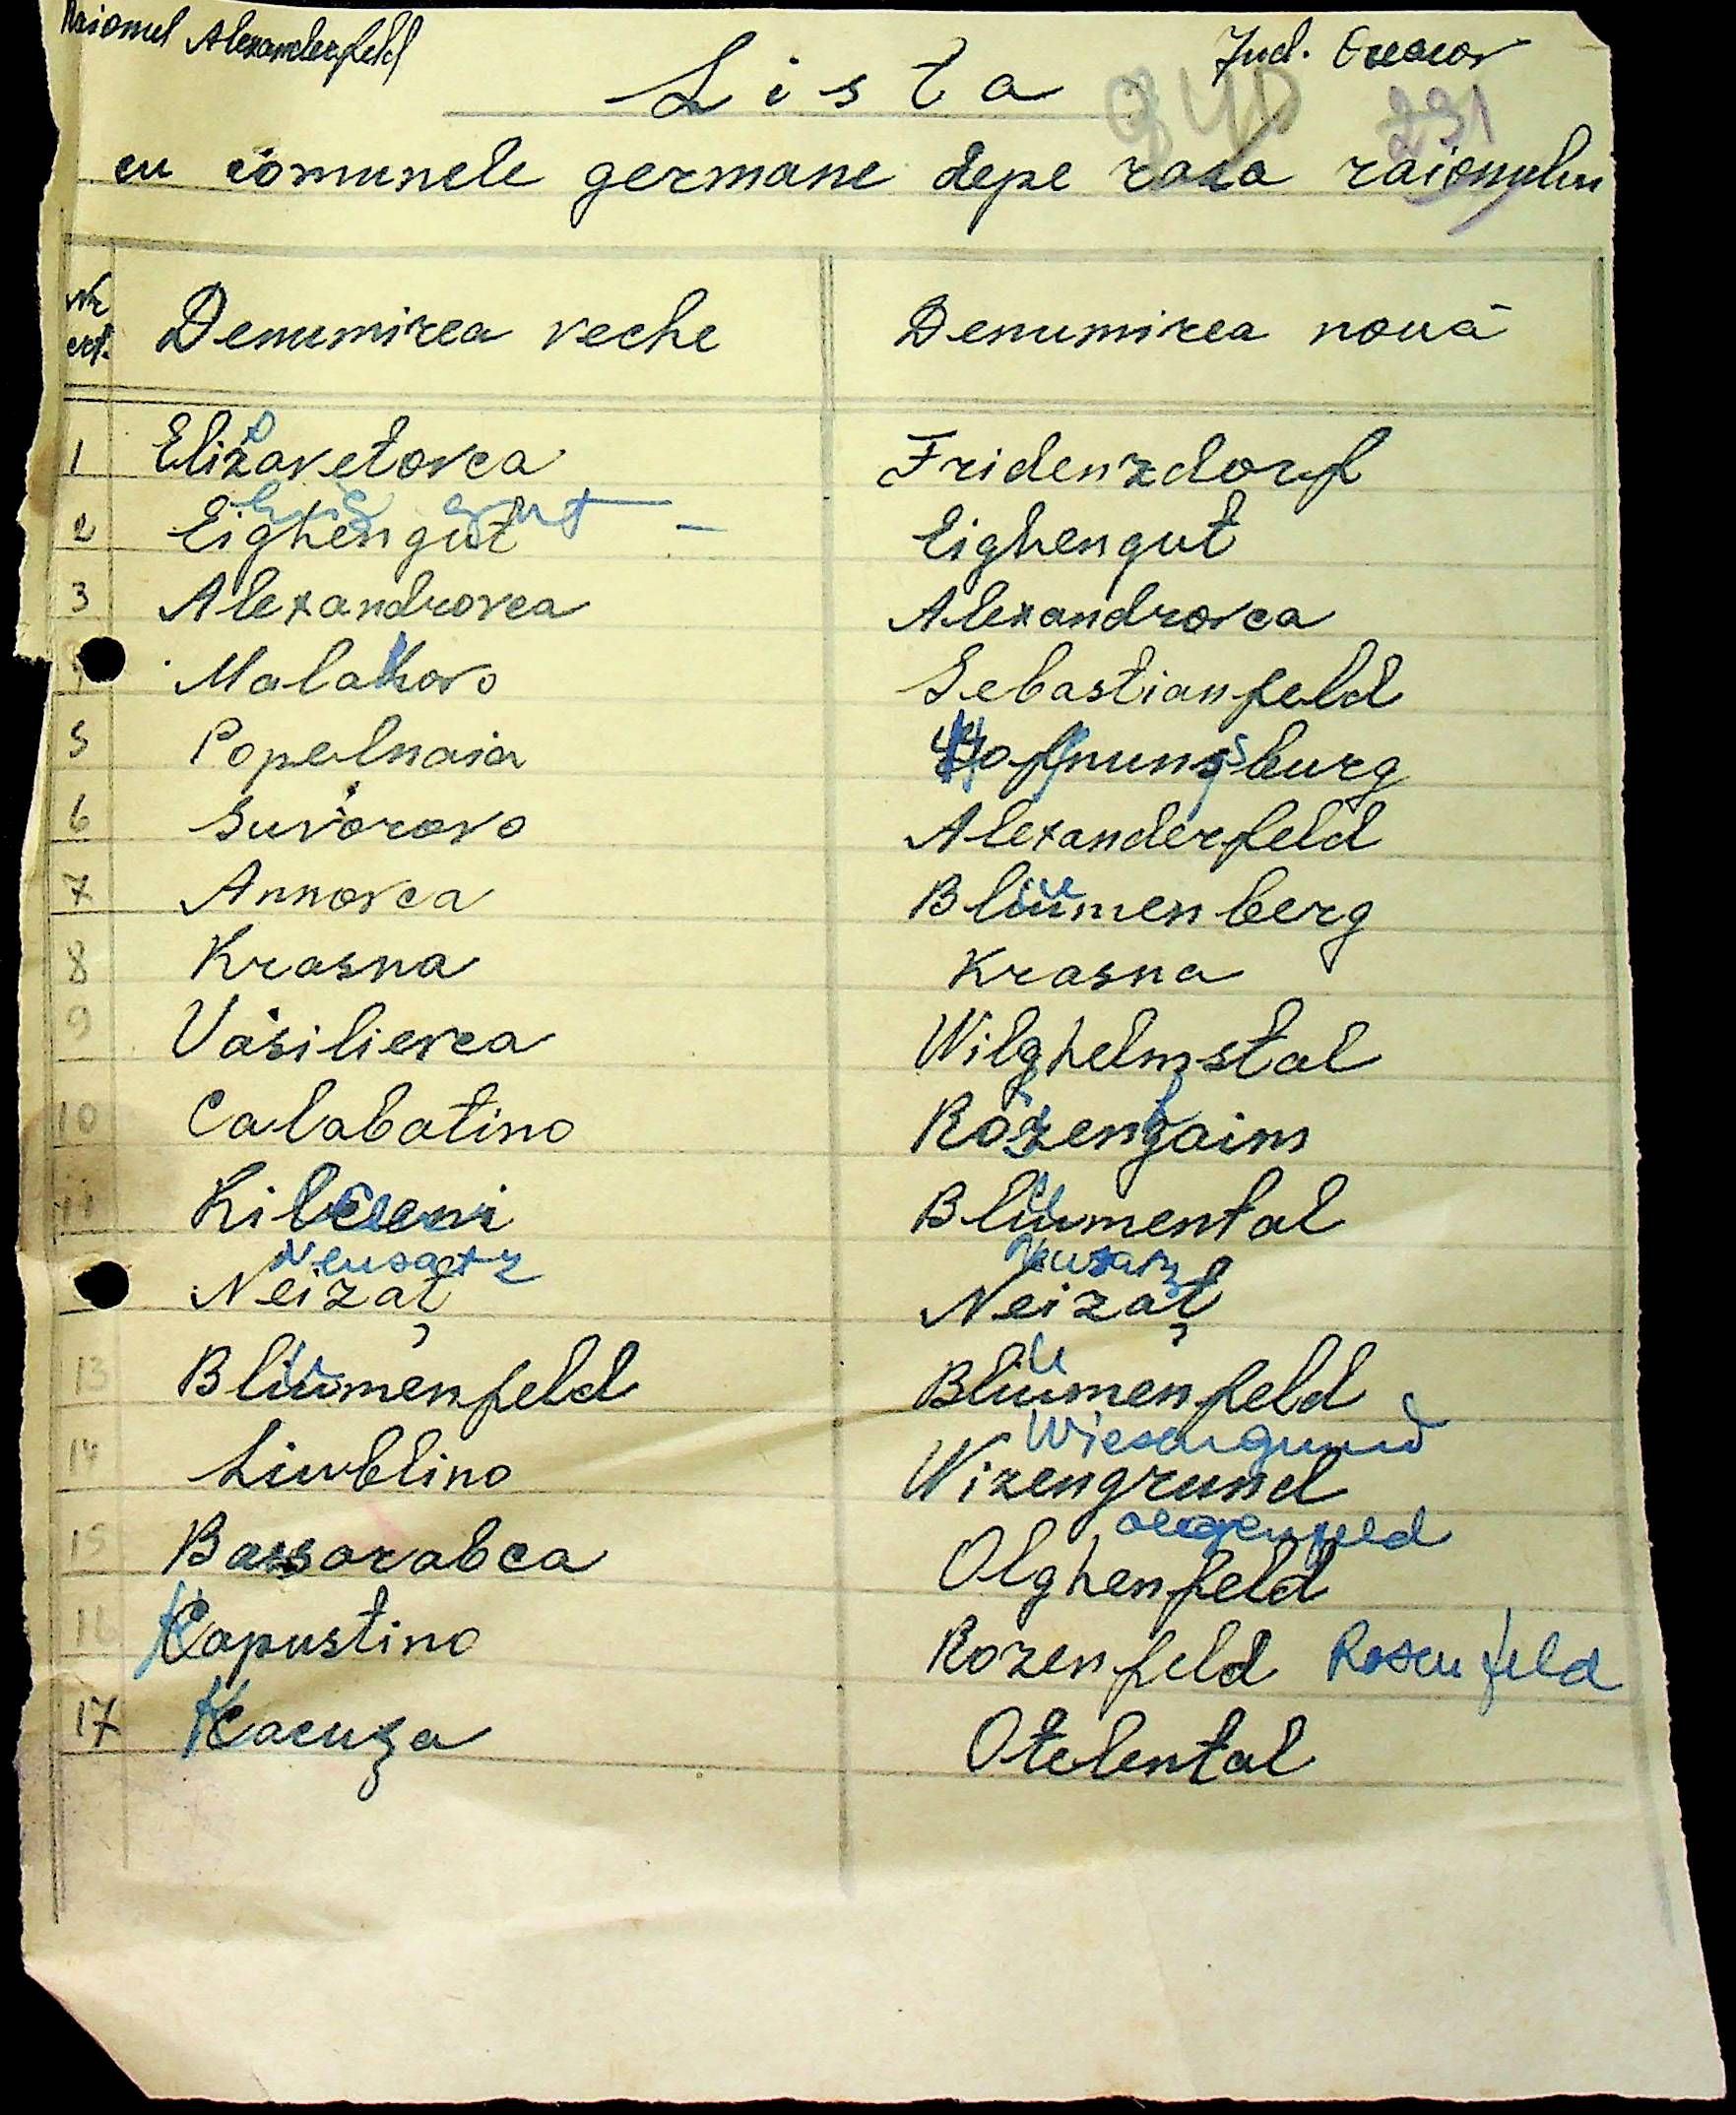 Raionul Alexanderfeld
Jud. Oceacov
Lista
291
cu comunele germane depe raza raionului
Nr crt. Denumirea veche Denumirea nouă
1 Elizavetovca Fridenzdorf
2 Eighengut Eighengut
3 Alexandrovca Alexandrovca
Malakovo Sebastianfeld
5 Popelnaia Hoffnungsburg
6 Suvorovo Alexanderfeld
7 Annovca Blümenberg
8 Krasna Krasna
9 Vasilievca Wilghelmstal
10 Calabatino
11 Blümental
Neusatz Neusatz
Neizaț Neizaț
13 Blümenfeld Blümenfeld
Wiesengrund
14 Liublino Wizengrund
15 Bassarabca Olghenfeld
16 Kapustino Rozenfeld Rosenfeld
17 Otelental